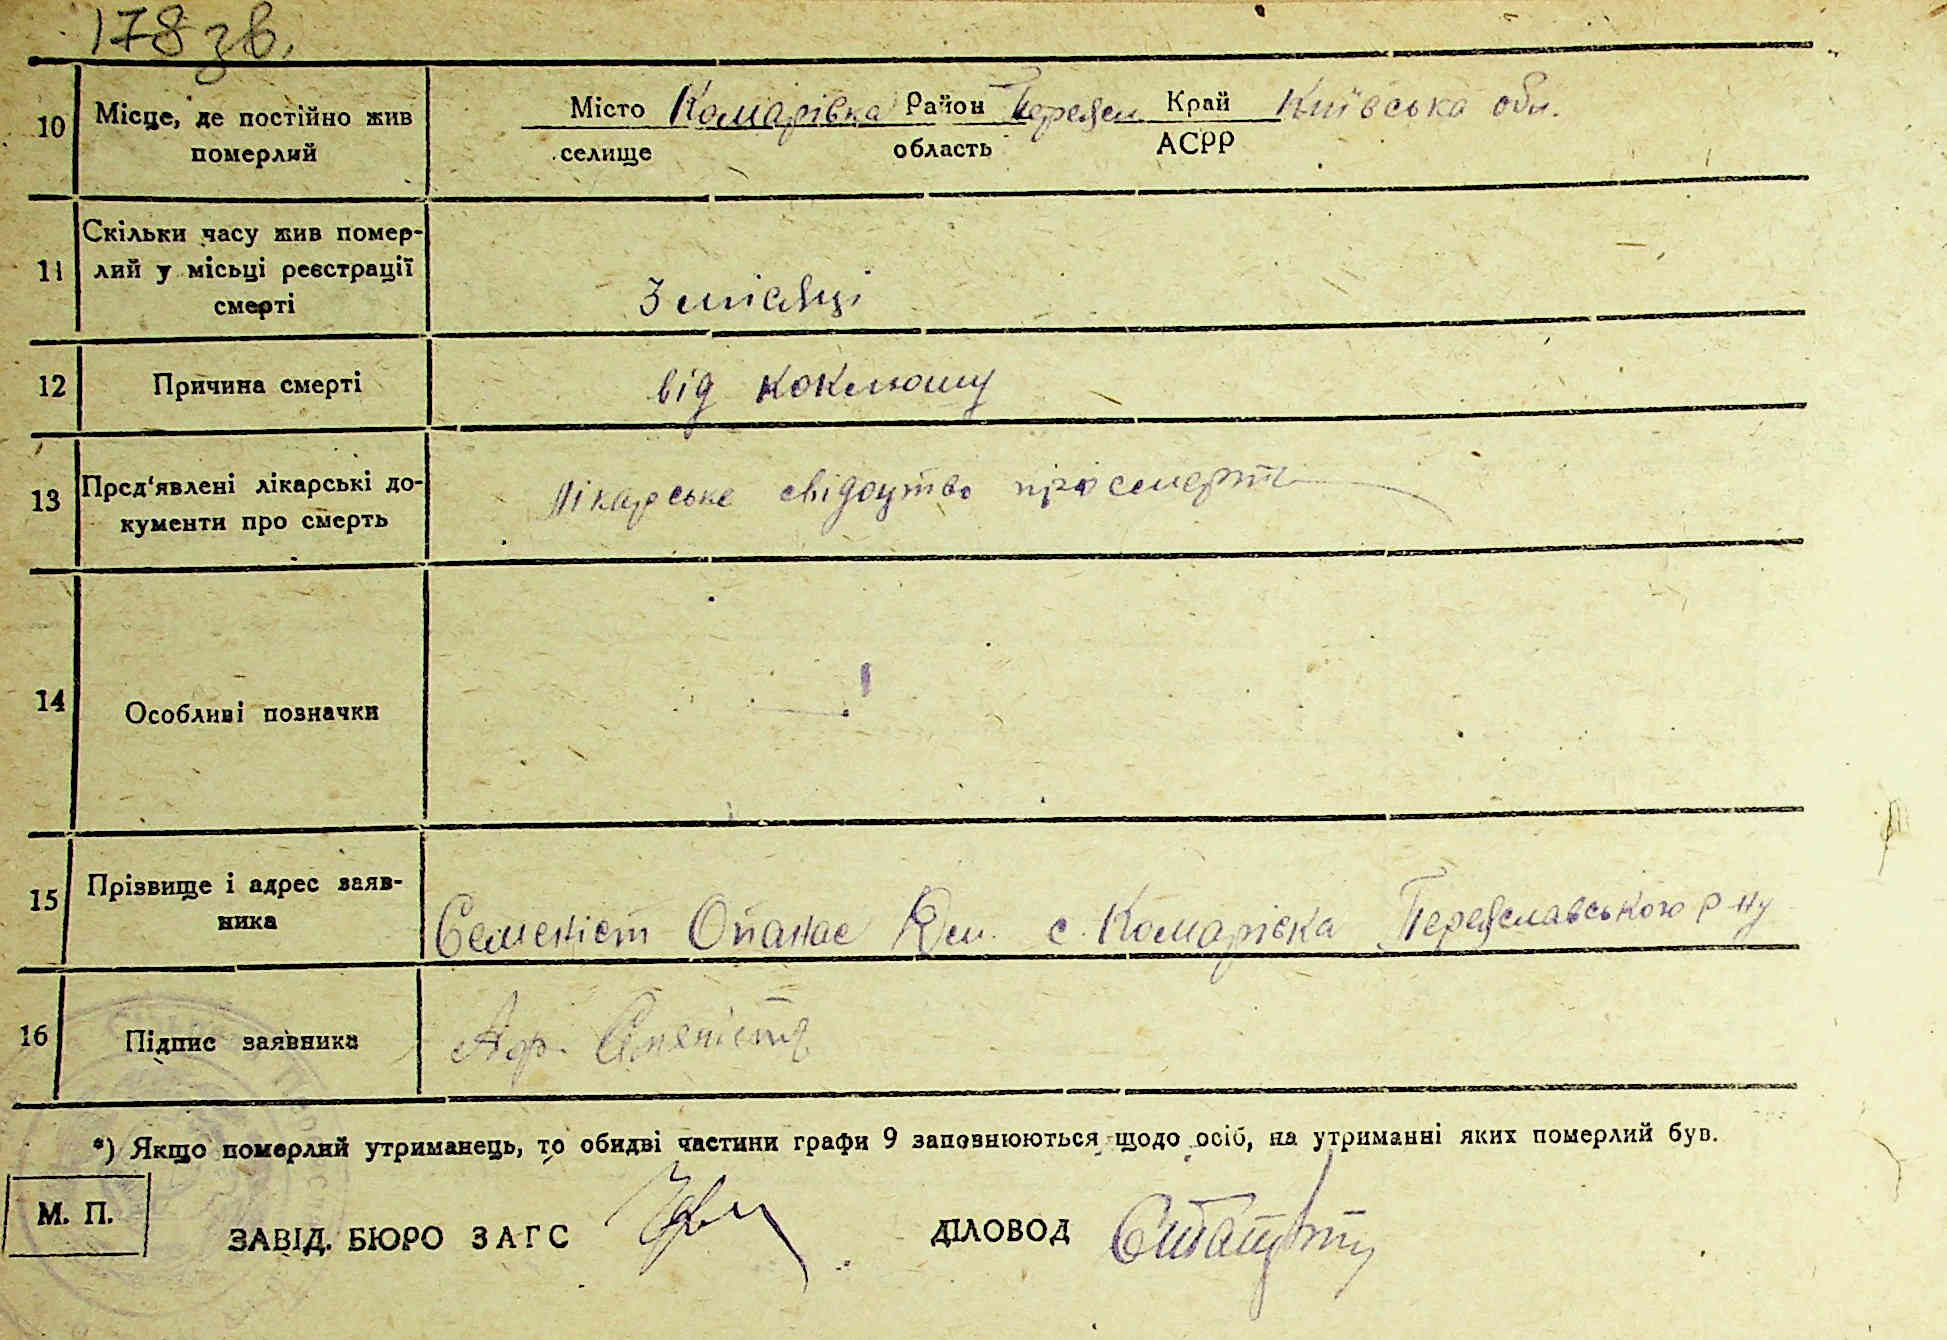 178 зв.
10 Місце, де постійно жив Місто Комарівка Район Переясл. Край Київська обл.
померлий селище область АСРР
Скільки часу жив помер-
11 лий у місьці реєстрації
смерті 3 місяці
12 Причина смерті від коклюшу
13 Пред'явлені лікарські до- Лікарське свідоцтво про смерть
кументи про смерть
14 Особливі позначки
15 Прізвище і адрес заяв- Семеніст Опанас с. Комарівка Переяславського р-ну
ника
16 Підпис заявника
*) Якщо померлий утриманець, то обидві частини графи 9 заповнюються щодо осіб, на утриманні яких померлий був.
М. П.
ЗАВІД. БЮРО ЗАГС ДІЛОВОД